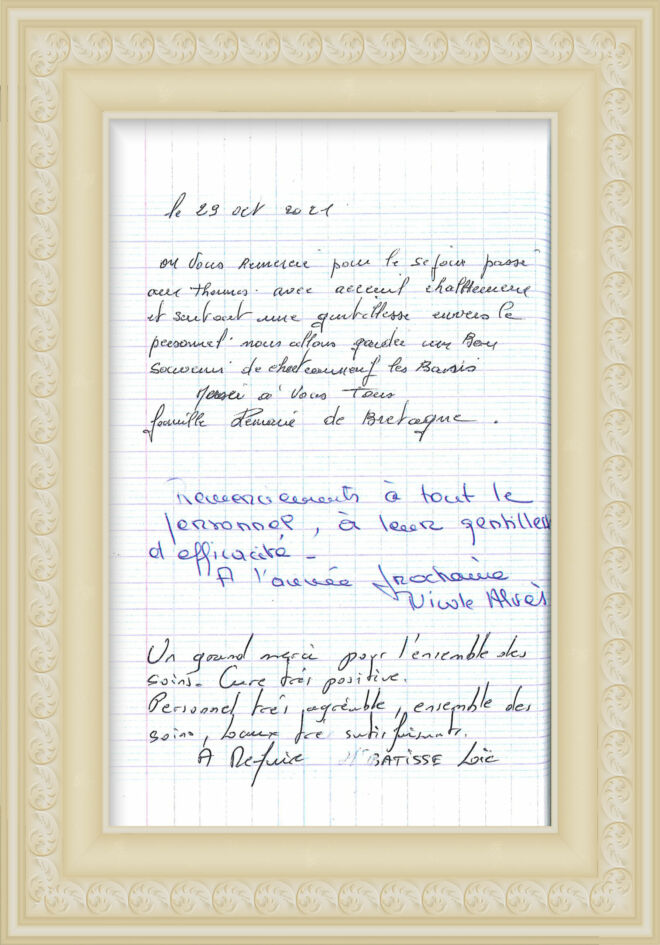 le 29 oct 2021
on Vous Remercie pour le sejour passé
aux Thermes. avec acceuil
et surtout une gentillesse envers le
personnel. nous allons garder un Bon
Souvenir de les Bains
Merci a Vous Tous
famille de Bretagne.
Remerciements à tout le
personnel, à leur
d'efficacité -
A l'année prochaine
Nicole Alvès
Un grand merci pour l'ensemble des
soins. Cure très positive.
Personnel très agréable, ensemble des
soins, Locaux satisfaisants.
A Refaire BATISSE Loïc